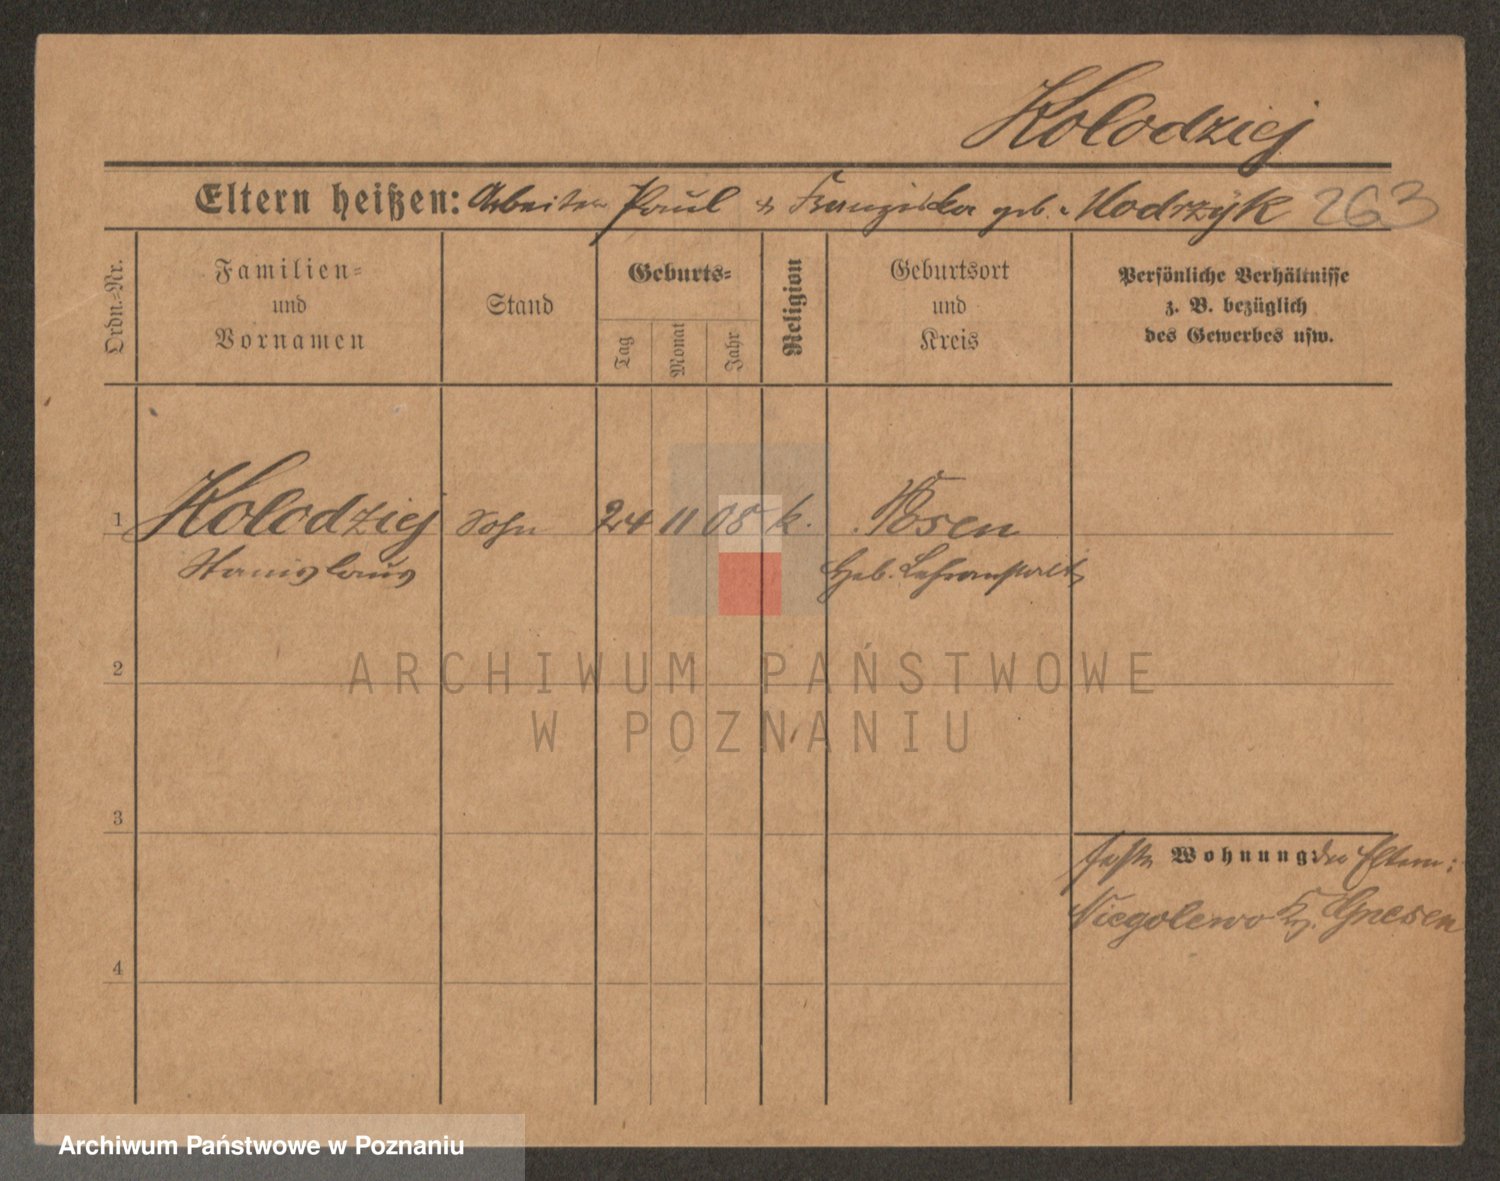 Kolodziej
Eltern heißen: Arbeiter Paul & Franziska geb. Modrzyk 263
Ordn.-Nr.
Familien-
und
Vornamen
Stand
Geburts-
Tag
Monat
Jahr
Religion
Geburtsort
und
Kreis
Persönliche Verhältnisse
z. B. bezüglich
des Gewerbes usw.
1 Kolodziej Sohn 24 11 08 k. Posen
Stanislaus Heb. Lehranstalt
2
ARCHIWUM PAŃSTWOWE
W POZNANIU
3
feste Wohnung der Eltern:
Niegolewo Kr. Gnesen
4
Archiwum Państwowe w Poznaniu